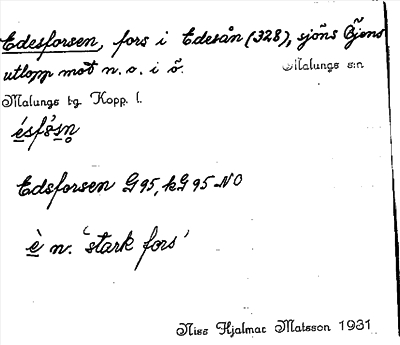 Edesforsen, fors i Edesån (328), sjöns Öjens
utlopp mot n.o. i ö. Malungs s:n
Malungs tg. Kopp. l.
Edsforsen G95, kG95 NO
è n. 'stark fors'
Niss Hjalmar Matsson 1931